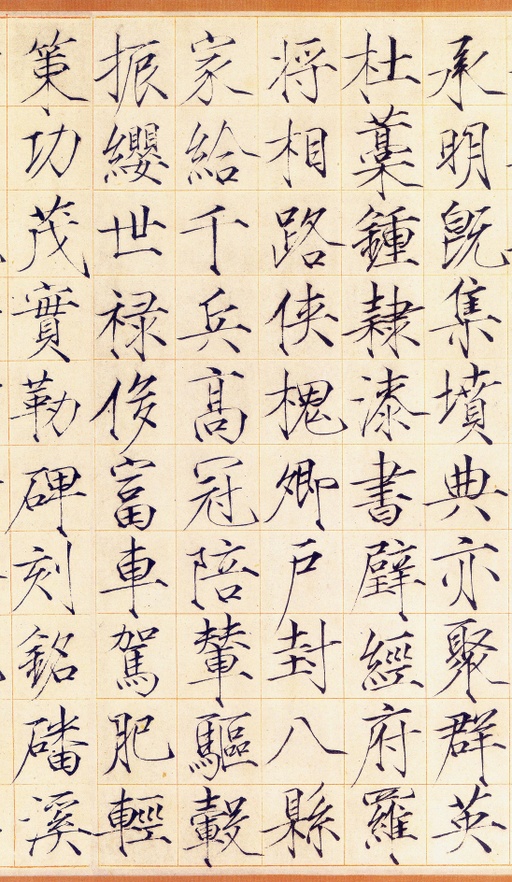 承明既集墳典亦聚群英
杜藁鍾隸漆書壁經府羅
将相路俠槐卿户封八縣
家給千兵高冠陪輦驅轂
振纓世禄侈富車駕肥輕
策功茂實勒碑刻銘磻溪